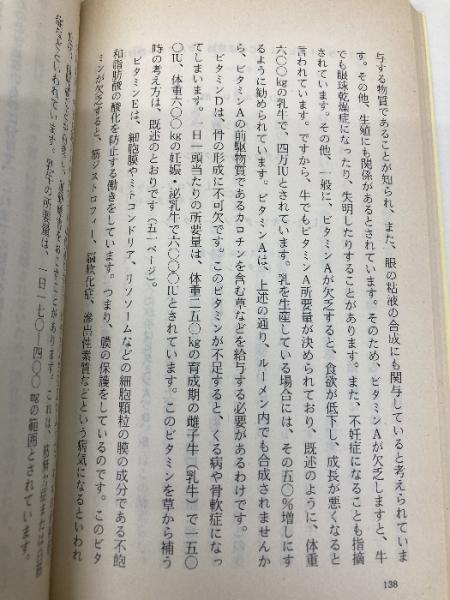 与する物質であることが知られ、また、眼の粘液の合成にも関与していると考えられていま
す。その他、生殖にも関係があるとされています。そのため、ビタミンAが欠乏しますと、牛
でも眼球乾燥症になったり、失明したりすることがあります。また、不妊症になることも指摘
されています。その他、一般に、ビタミンAが欠乏すると、食欲が低下し、成長が悪くなると
言われています。ですから、牛でもビタミンA所要量が決められており、既述のように、体重
六〇〇kgの乳牛で、四万IUとされています。乳を生産している場合には、その五〇%増しにす
るように勧められています。ビタミンAは、上述の通り、ルーメン内でも合成されませんか
ら、ビタミンAの前駆物質であるカロチンを含む草などを給与する必要があるわけです。
ビタミンDは、骨の形成に不可欠です。このビタミンが不足すると、くる病や骨軟症になっ
てしまいます。一日一頭当たりの所要量は、体重二五〇kgの育成期の雌子牛(乳牛)で一五〇
〇IU、体重六〇〇kgの妊娠・泌乳牛で六〇〇〇IUとされています。このビタミンを草から補う
時の考え方は、既述のとおりです(五一ページ)。
ビタミンEは、細胞膜やミトコンドリア、リソソームなどの細胞顆粒の膜の成分である不飽
和脂肪酸の酸化を防止する働きをしています。つまり、膜の保護をしているのです。このビタ
ミンが欠乏すると、筋ジストロフィー、脳軟化症、滲出性素質などという病気になるといわれ
こともあります。これは、筋
症などといわれています。乳牛の所要量は、一日一七〇―四〇〇mgの範囲とされています。
138